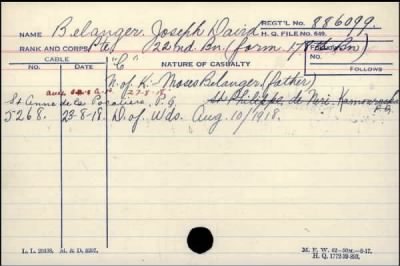 NAME Belanger. Joseph David REGT'L NO. 886099.
H. Q. FILE NO. 649.
RANK AND CORPS Pte 22nd. Bn. (form 178th Bn)
CABLE NATURE OF CASUALTY
NO. DATE "C" FOLLOWS
N. of K. Moses Belanger. (father)
27-8-18
St. Anne de la Pocatiere, P.Q. St Philippe de Neri. Kamouraska P.Q.
5268. 23-8-18. D. of Wds. Aug. 10/1918.
L. L. M. & D. 8207. M. F. W. 42-50m.-9-17.
H. Q. 1772-39-893.